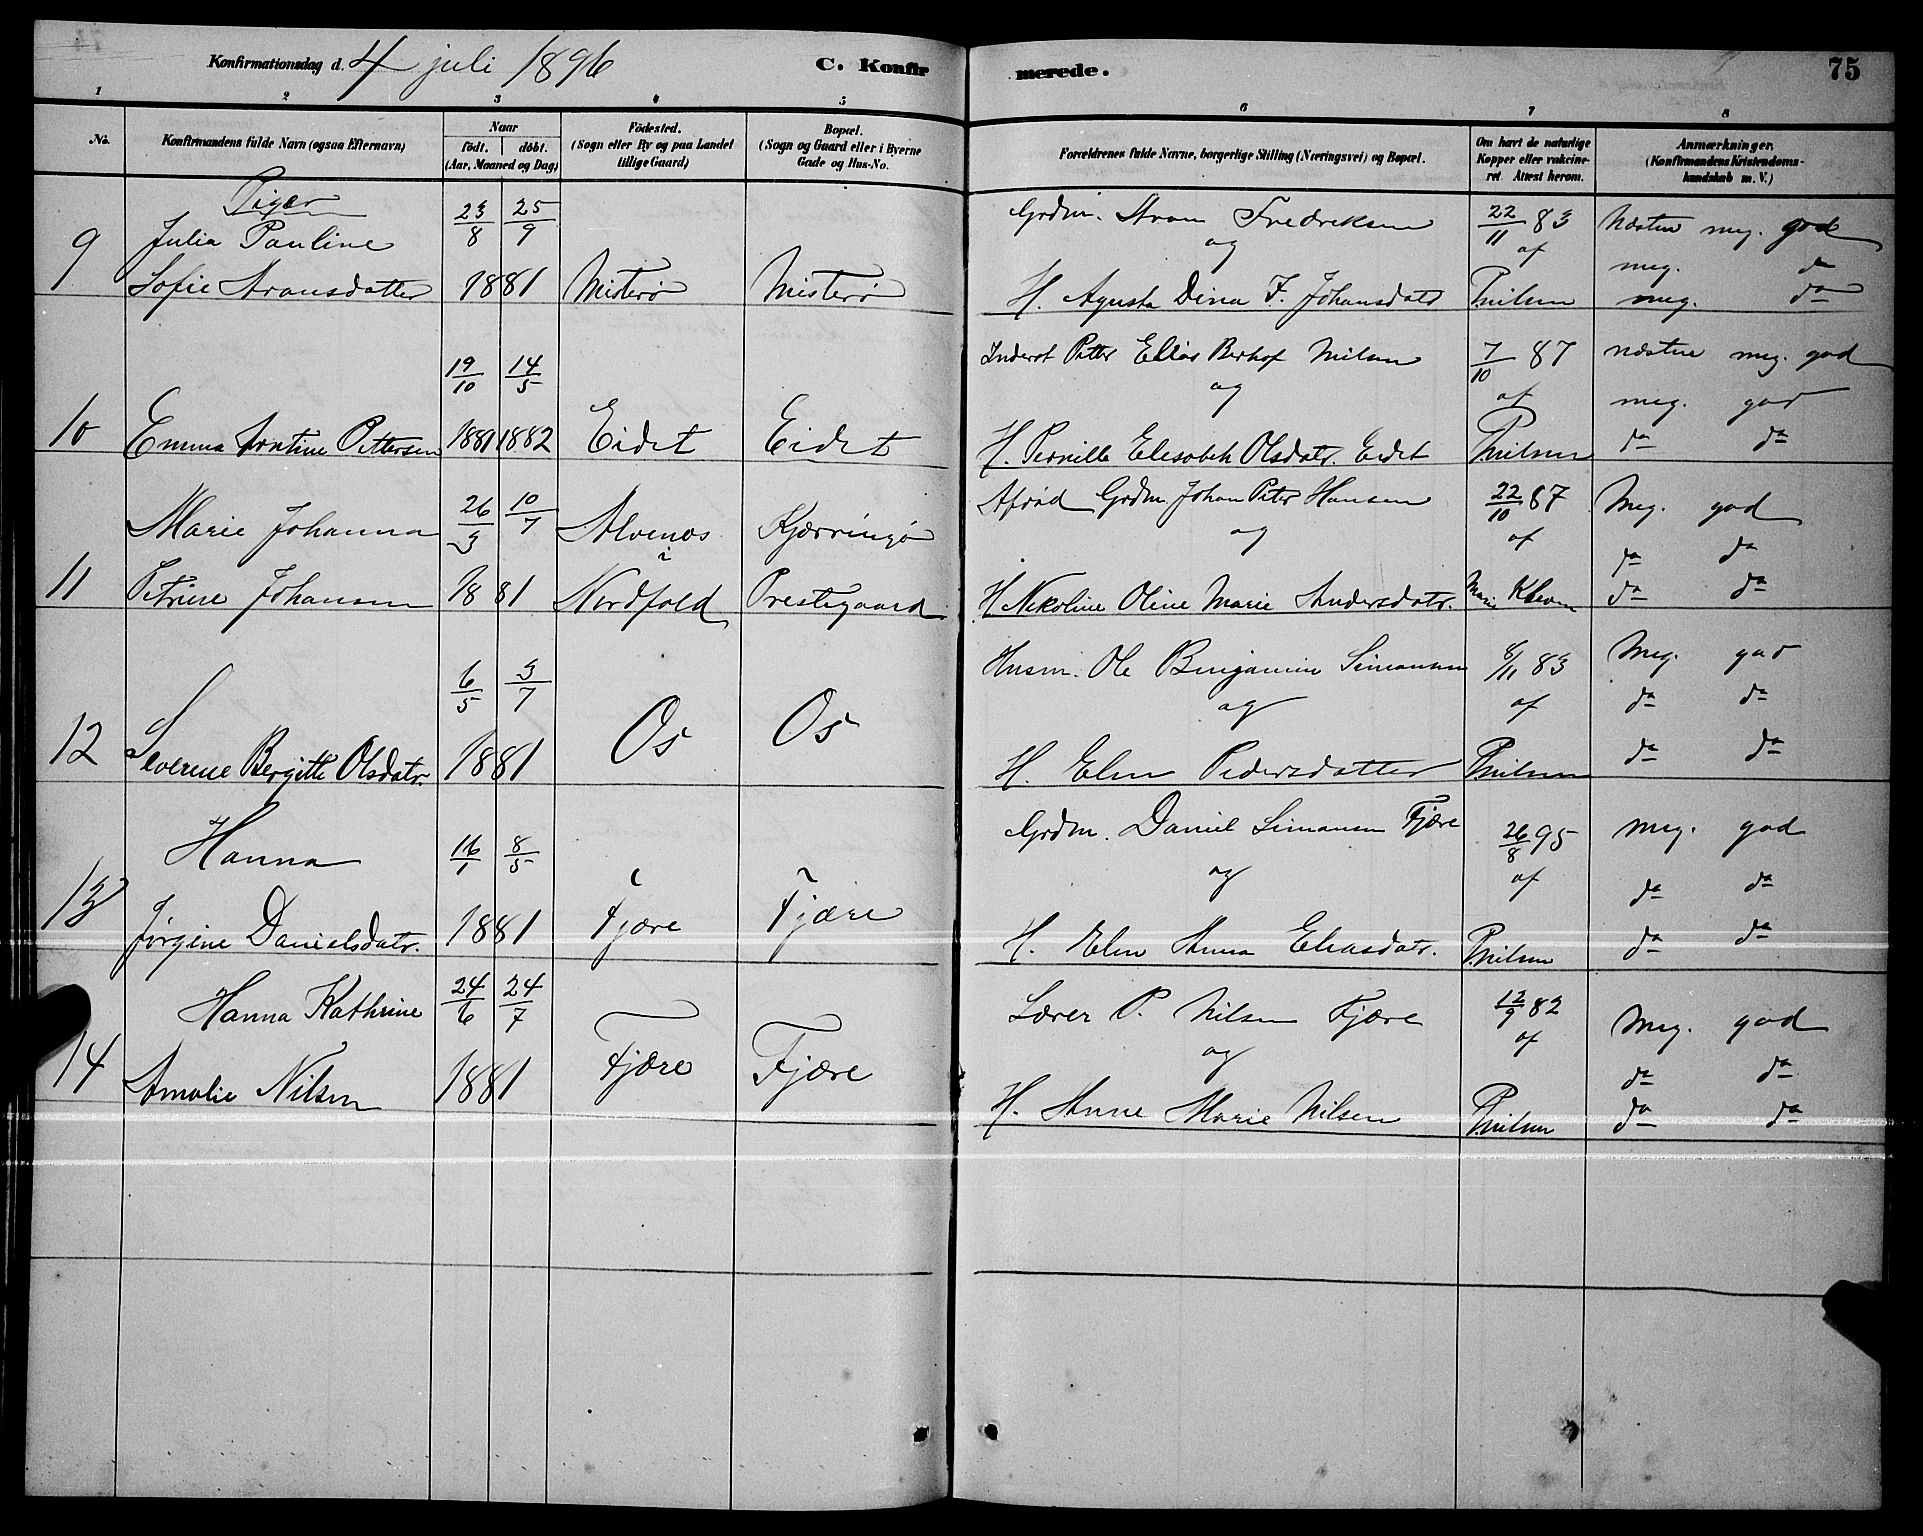 Konfirmationsdag d. 4 juli 1896
C. Konfirmerede.
75
1 2 3 4 5 6 7 8
No.
Konfirmandens fulde Navn (ogsaa Efternavn)
Naar
födt. döbt.
(Aar, Maaned og Dag)
Födested.
(Sogn eller By og paa Landet
tillige Gaard)
Bopæl.
(Sogn og Gaard eller i Byerne
Gade og Hus-No.
Forældrenes fulde Navne, borgerlige Stilling (Næringsvei) og Bopæl.
Om havt de naturlige
Kopper eller vakcine-
ret Attest herom.
Anmærkninger.
(Konfirmandens Kristendoms-
kundskab m. V.)
Piger
9 Julia Pauline
Sofie Aronsdatter
23/8 25/9
1881
Misterø
Misterø
Grdm. Aron Fredriksen
og
H. Agusta Dina F. Johansdatr
22/11 83
af
P. Nilsen
Næsten meg. god
meg. do
meg. do
10 Emma Pettersen
19/10 14/5
1881 1882
Eidet
Eidet
Inderst Petter Elias Nilsen
og
H. Pernille Elesabeth Olsdatr. Eidet
7/10 87
af
P. Nilsen
næsten meg. god
meg. god
do do
11 Marie Johanna
Petrine Johansen
26/3 10/7
1881
Alvenes
i
Nordfold
Kjærringø
Prestegaard
Afdød Grdm. Johan Peter Hansen
og
H. Nikoline Oline Marie Andersdatr.
22/10 87
af
Marie
Meg. god
do do
do do
12 Severine Bergitte Olsdatr.
6/5 3/7
1881
Os
Os
Husm. Ole Benjamin Simonsen
og
H. Elen Pedersdatter
8/11 83
af
P. Nilsen
Meg. god
do do
do do
13 Hanna
Jørgine Danielsdatr.
16/1 8/5
1881
Fjære
Fjære
Grdm. Daniel Simonsen Fjære
og
H. Elen Anna Eliasdatr.
26/8 95
af
P. Nilsen
meg. god
do do
do do
14 Hanna Kathrine
Amalie Nilsen
24/6 24/7
1881
Fjære
Fjære
Lærer P. Nilsen Fjære
og
H. Anne Marie Nilsen
12/9 82
af
P. Nilsen
Meg. god
do do
do do